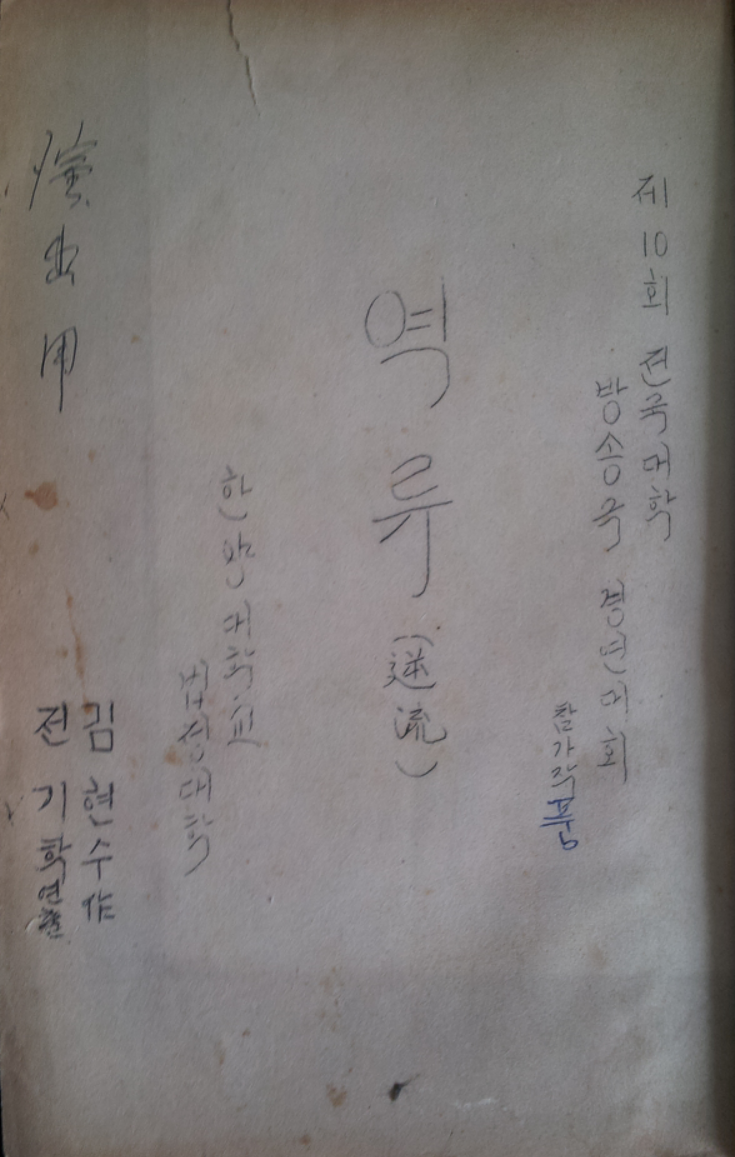 제 10회 전국대학
방송국 경연대회
참가작품
역류 (逆流)
한양대학교
법정대학
김현수 作
전기학 연출
演出用